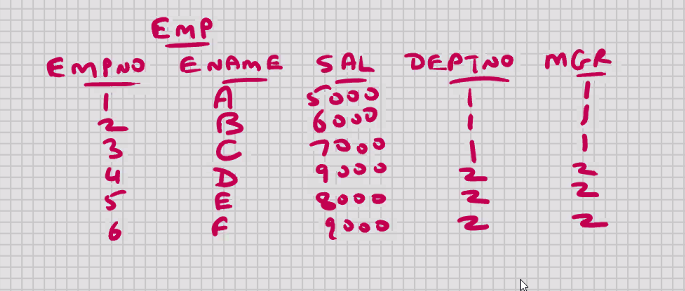 EMP
EMPNO ENAME SAL DEPTNO MGR
1 A 5000 1 1
2 B 6000 1 1
3 C 7000 1 1
4 D 9000 2 2
5 E 8000 2 2
6 F 9000 2 2